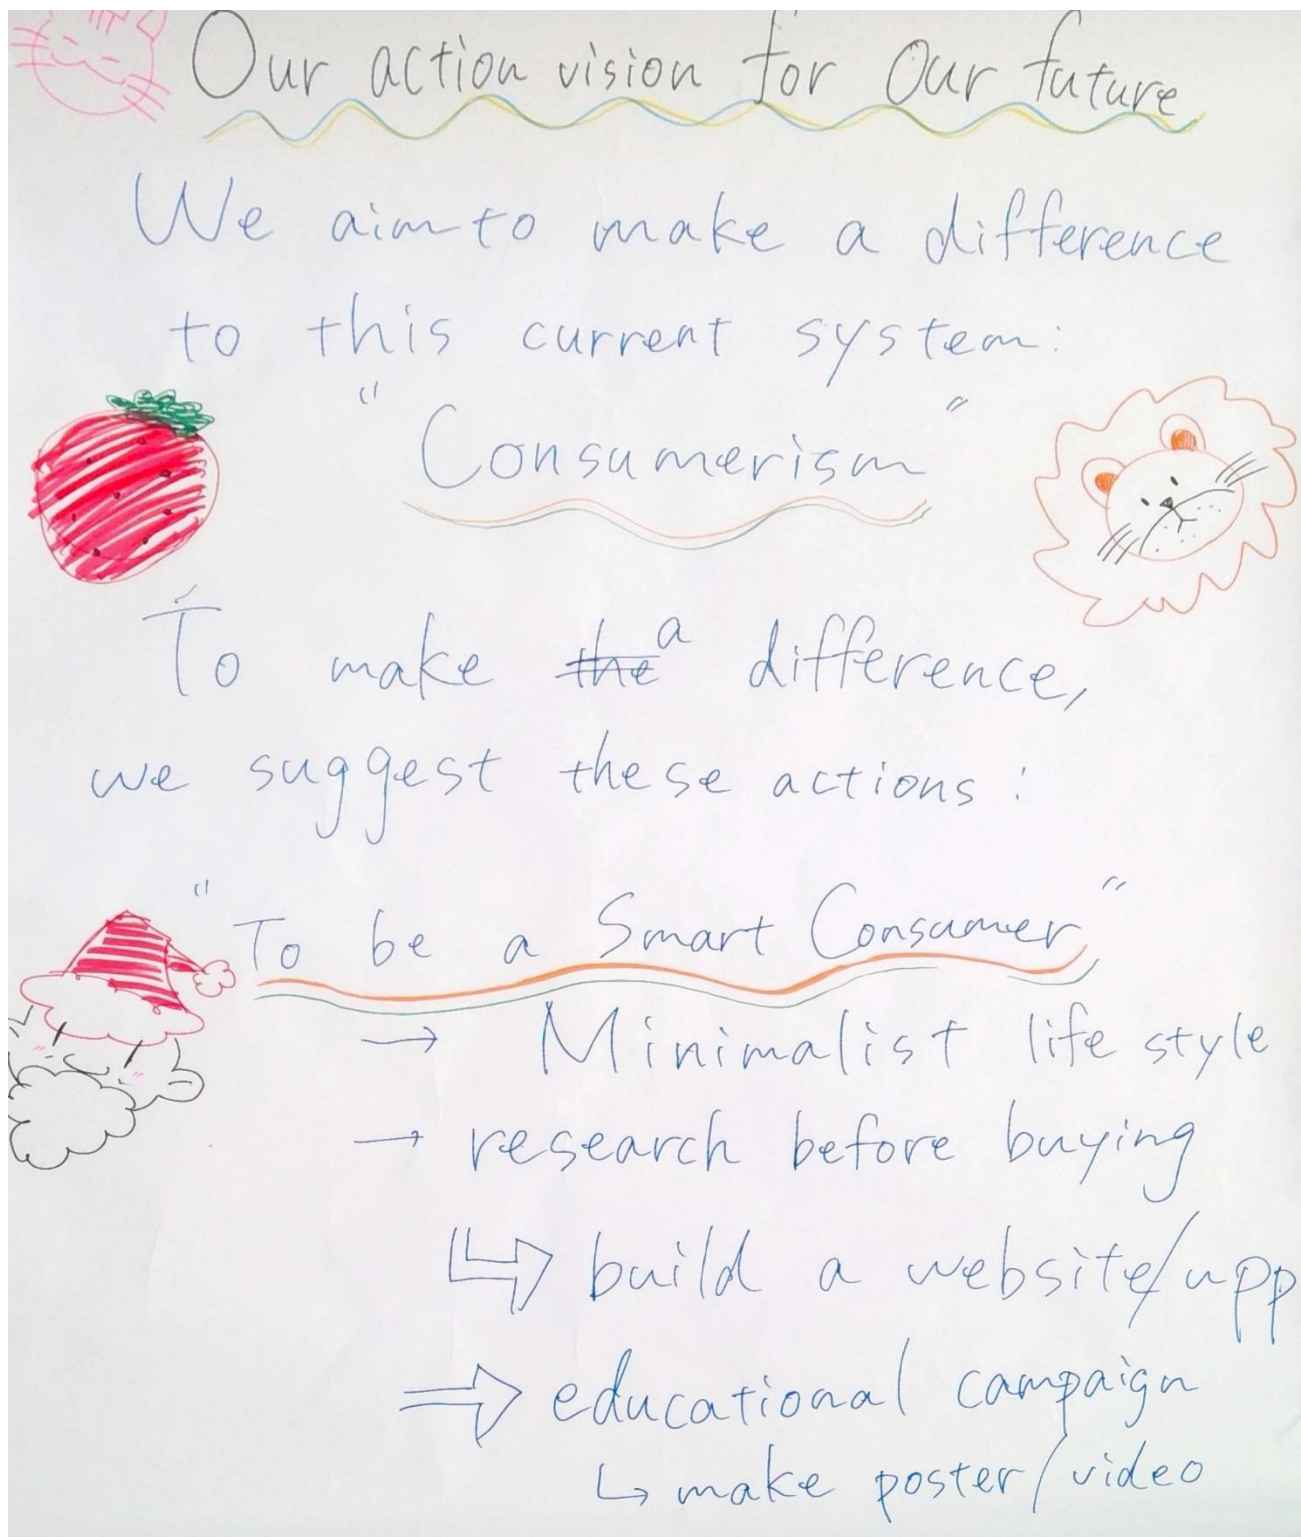 Our action vision for Our future
We aim to make a difference
to this current system:
"Consumerism"
To make ~~the~~ a difference,
we suggest these actions:
"To be a Smart Consumer"
→ Minimalist life style
→ research before buying
↳ build a website/app
⇒ educational campaign
↳ make poster/video